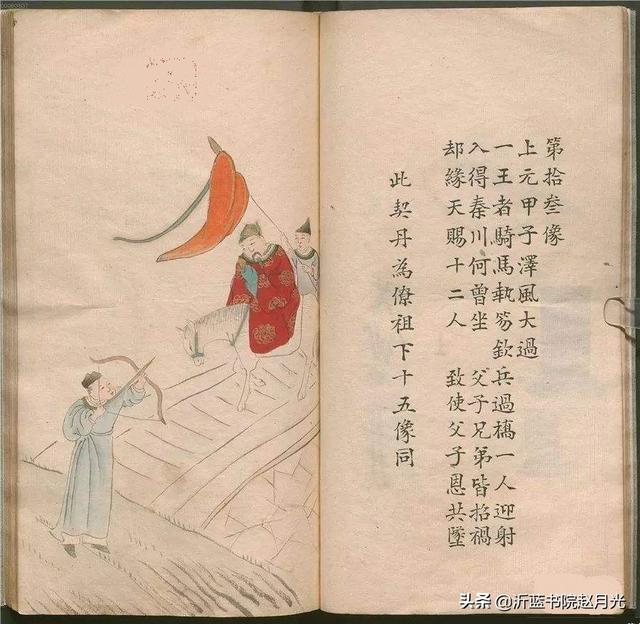 第拾叁像
上元甲子澤風大過
一王者騎馬執笏欽兵過橋一人迎射
入得秦川何曾坐 父子兄弟皆招禍
却緣天賜十二人 致使父子恩共墜
此契丹為僚祖下十五像同
头条 @沂蓝书院赵月光